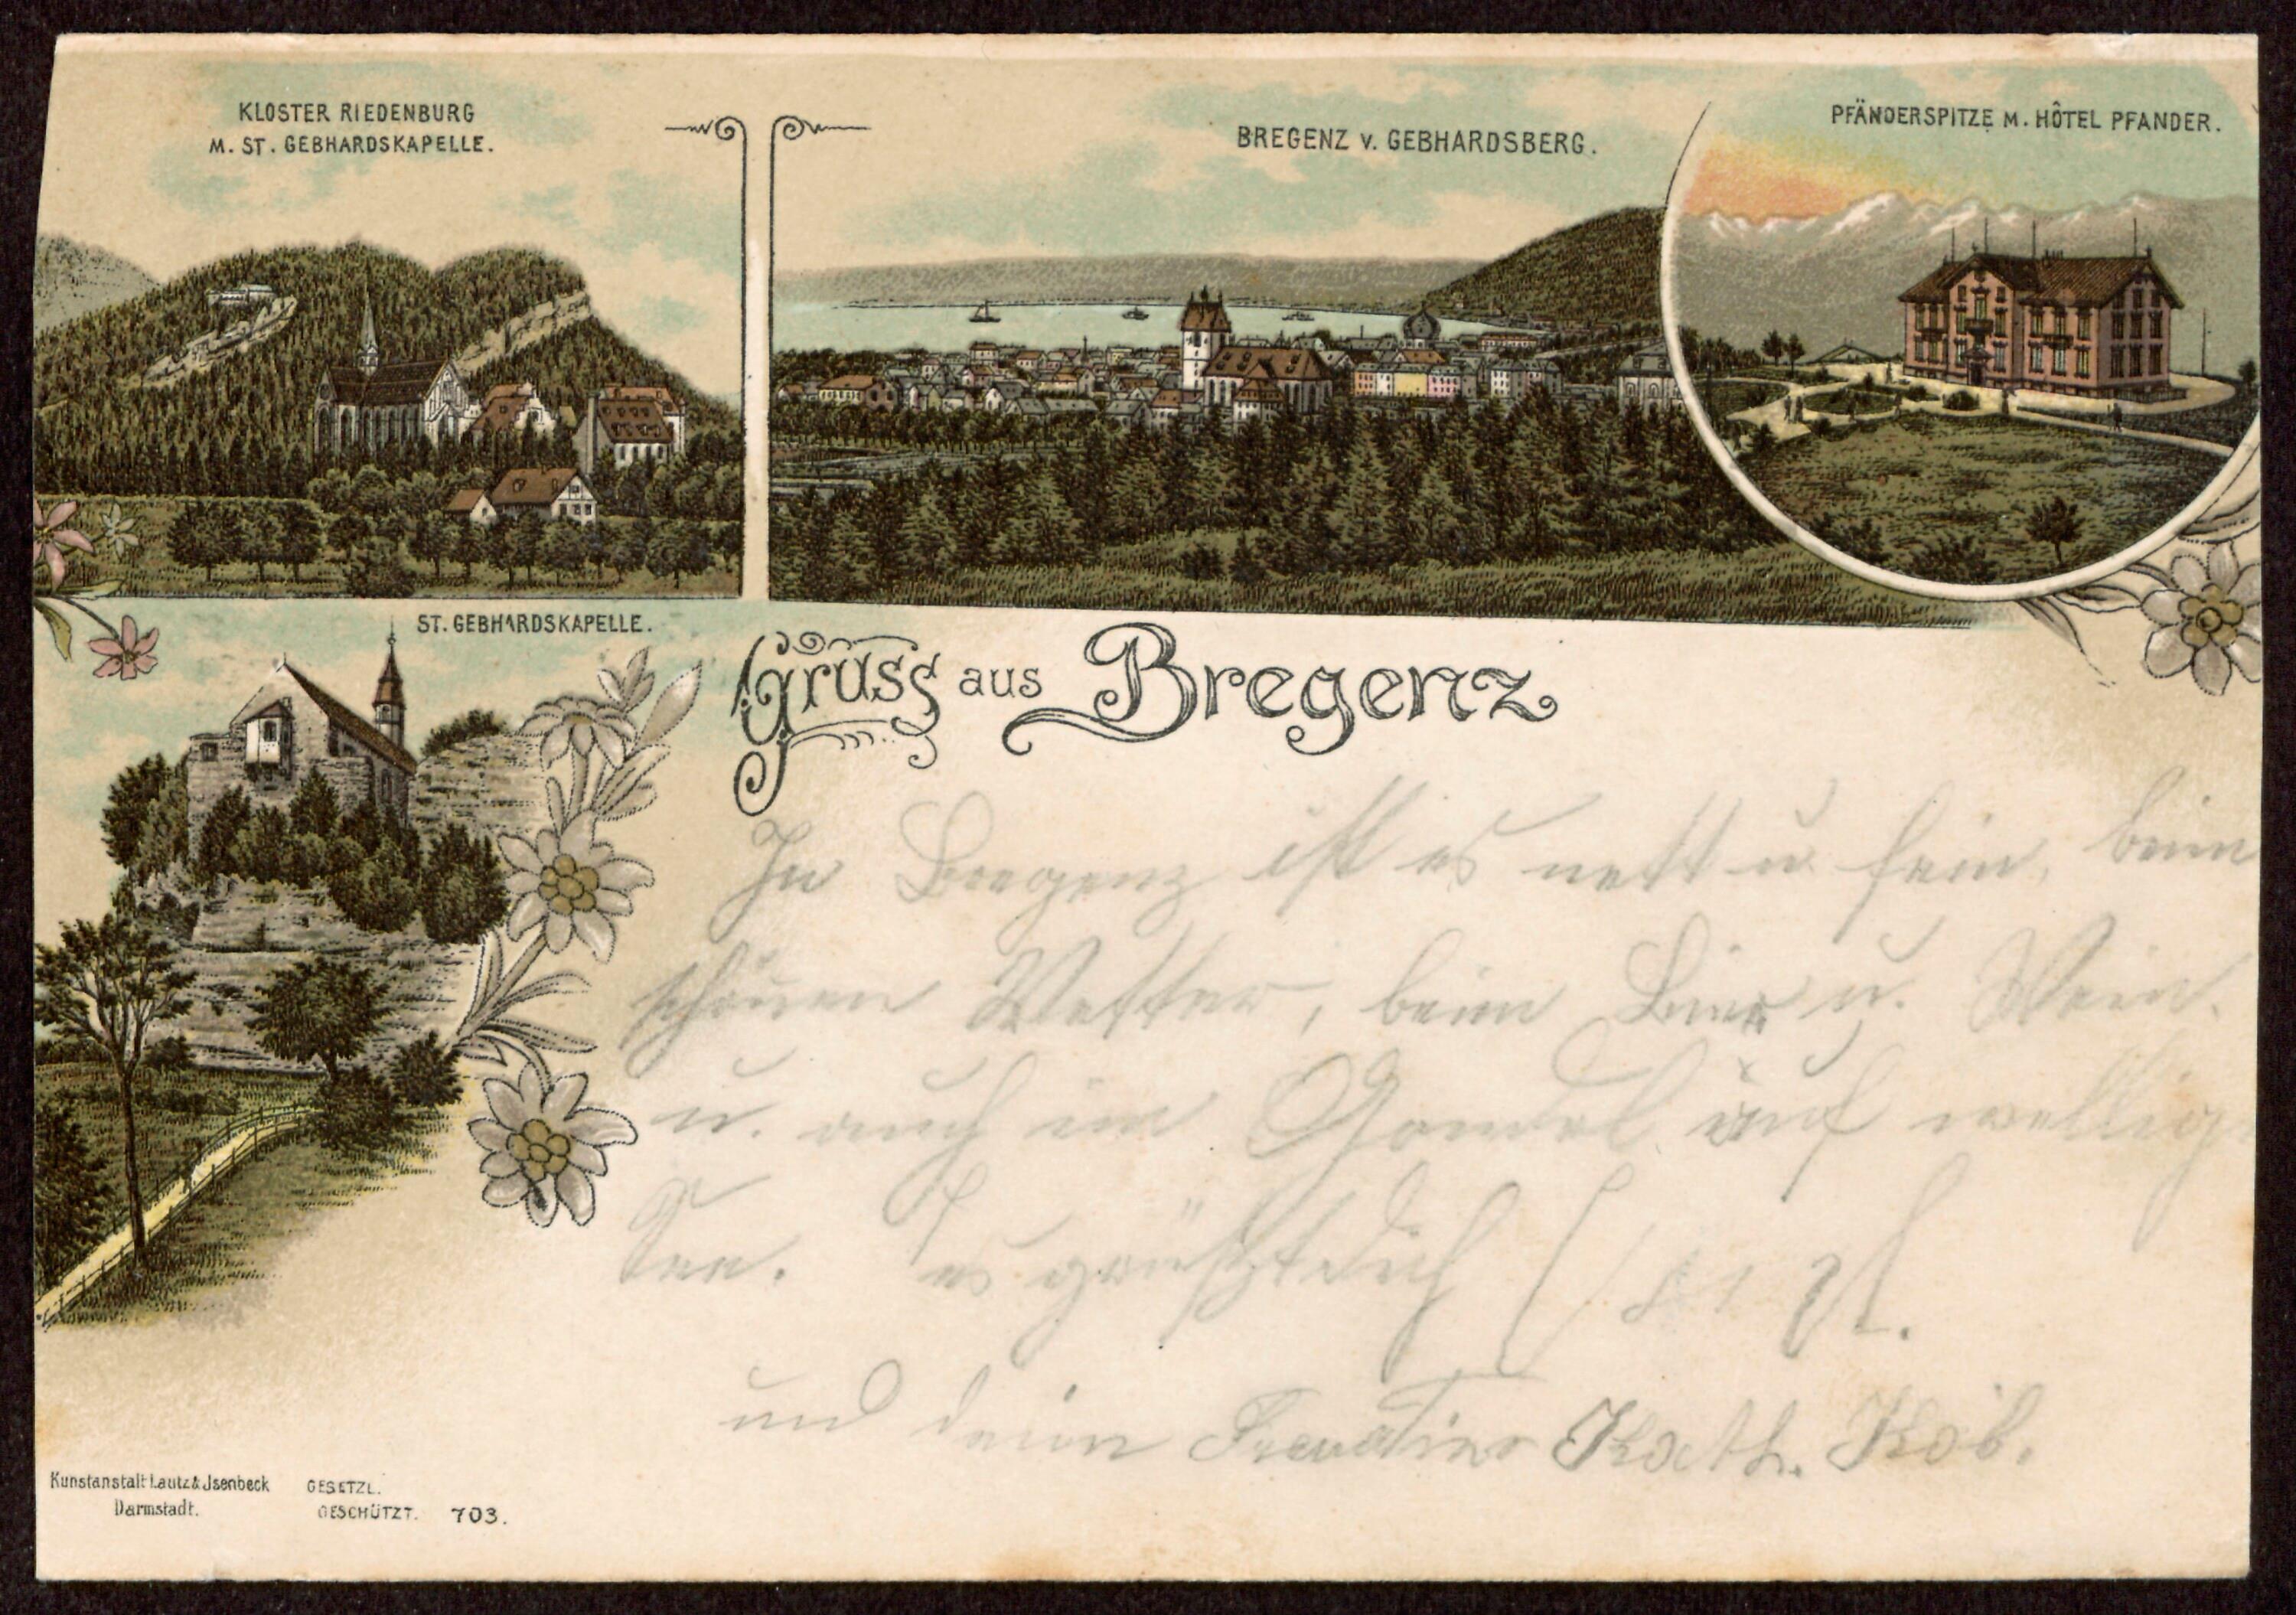 KLOSTER RIEDENBURG
M. ST. GEBHARDSKAPELLE.
BREGENZ v. GEBHARDSBERG.
PFÄNDERSPITZE M. HÔTEL PFANDER.
ST. GEBHARDSKAPELLE.
Gruss aus Bregenz
In Bregenz ist es nett u. fein, beim
schönen Wetter, beim Bier u. Wein.
u. auch im Gondel auf wellig
See. es grüßt dich
und deine Kath. Kob.
Kunstanstalt Lautz & Jsenbeck
Darmstadt.
GESETZL.
GESCHÜTZT. 703.